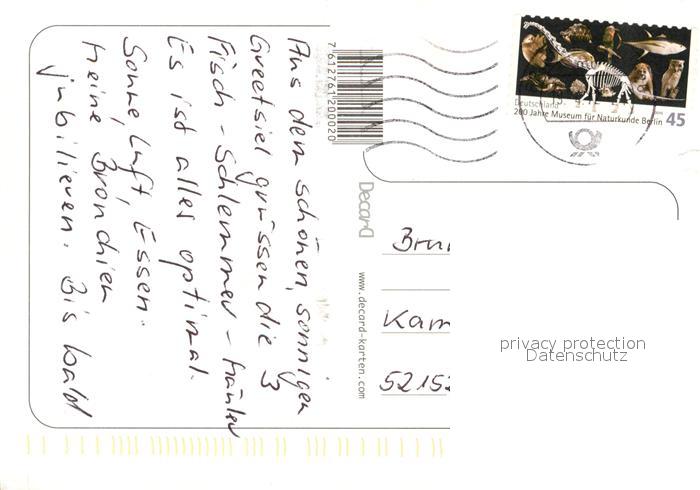 Aus dem schönen, sonnigen
Greetsiel grüssen die 3
Fisch-Schlemmer-fräulen
Es ist alles optimal.
Sonne, Luft, Essen.
Meine Bronchien
jubilieren. Bis bald
7612761200020
Decard
www.decard-karten.com
Deutschland
200 Jahre Museum für Naturkunde Berlin 45
Brun
Kam
52152
privacy protection
Datenschutz